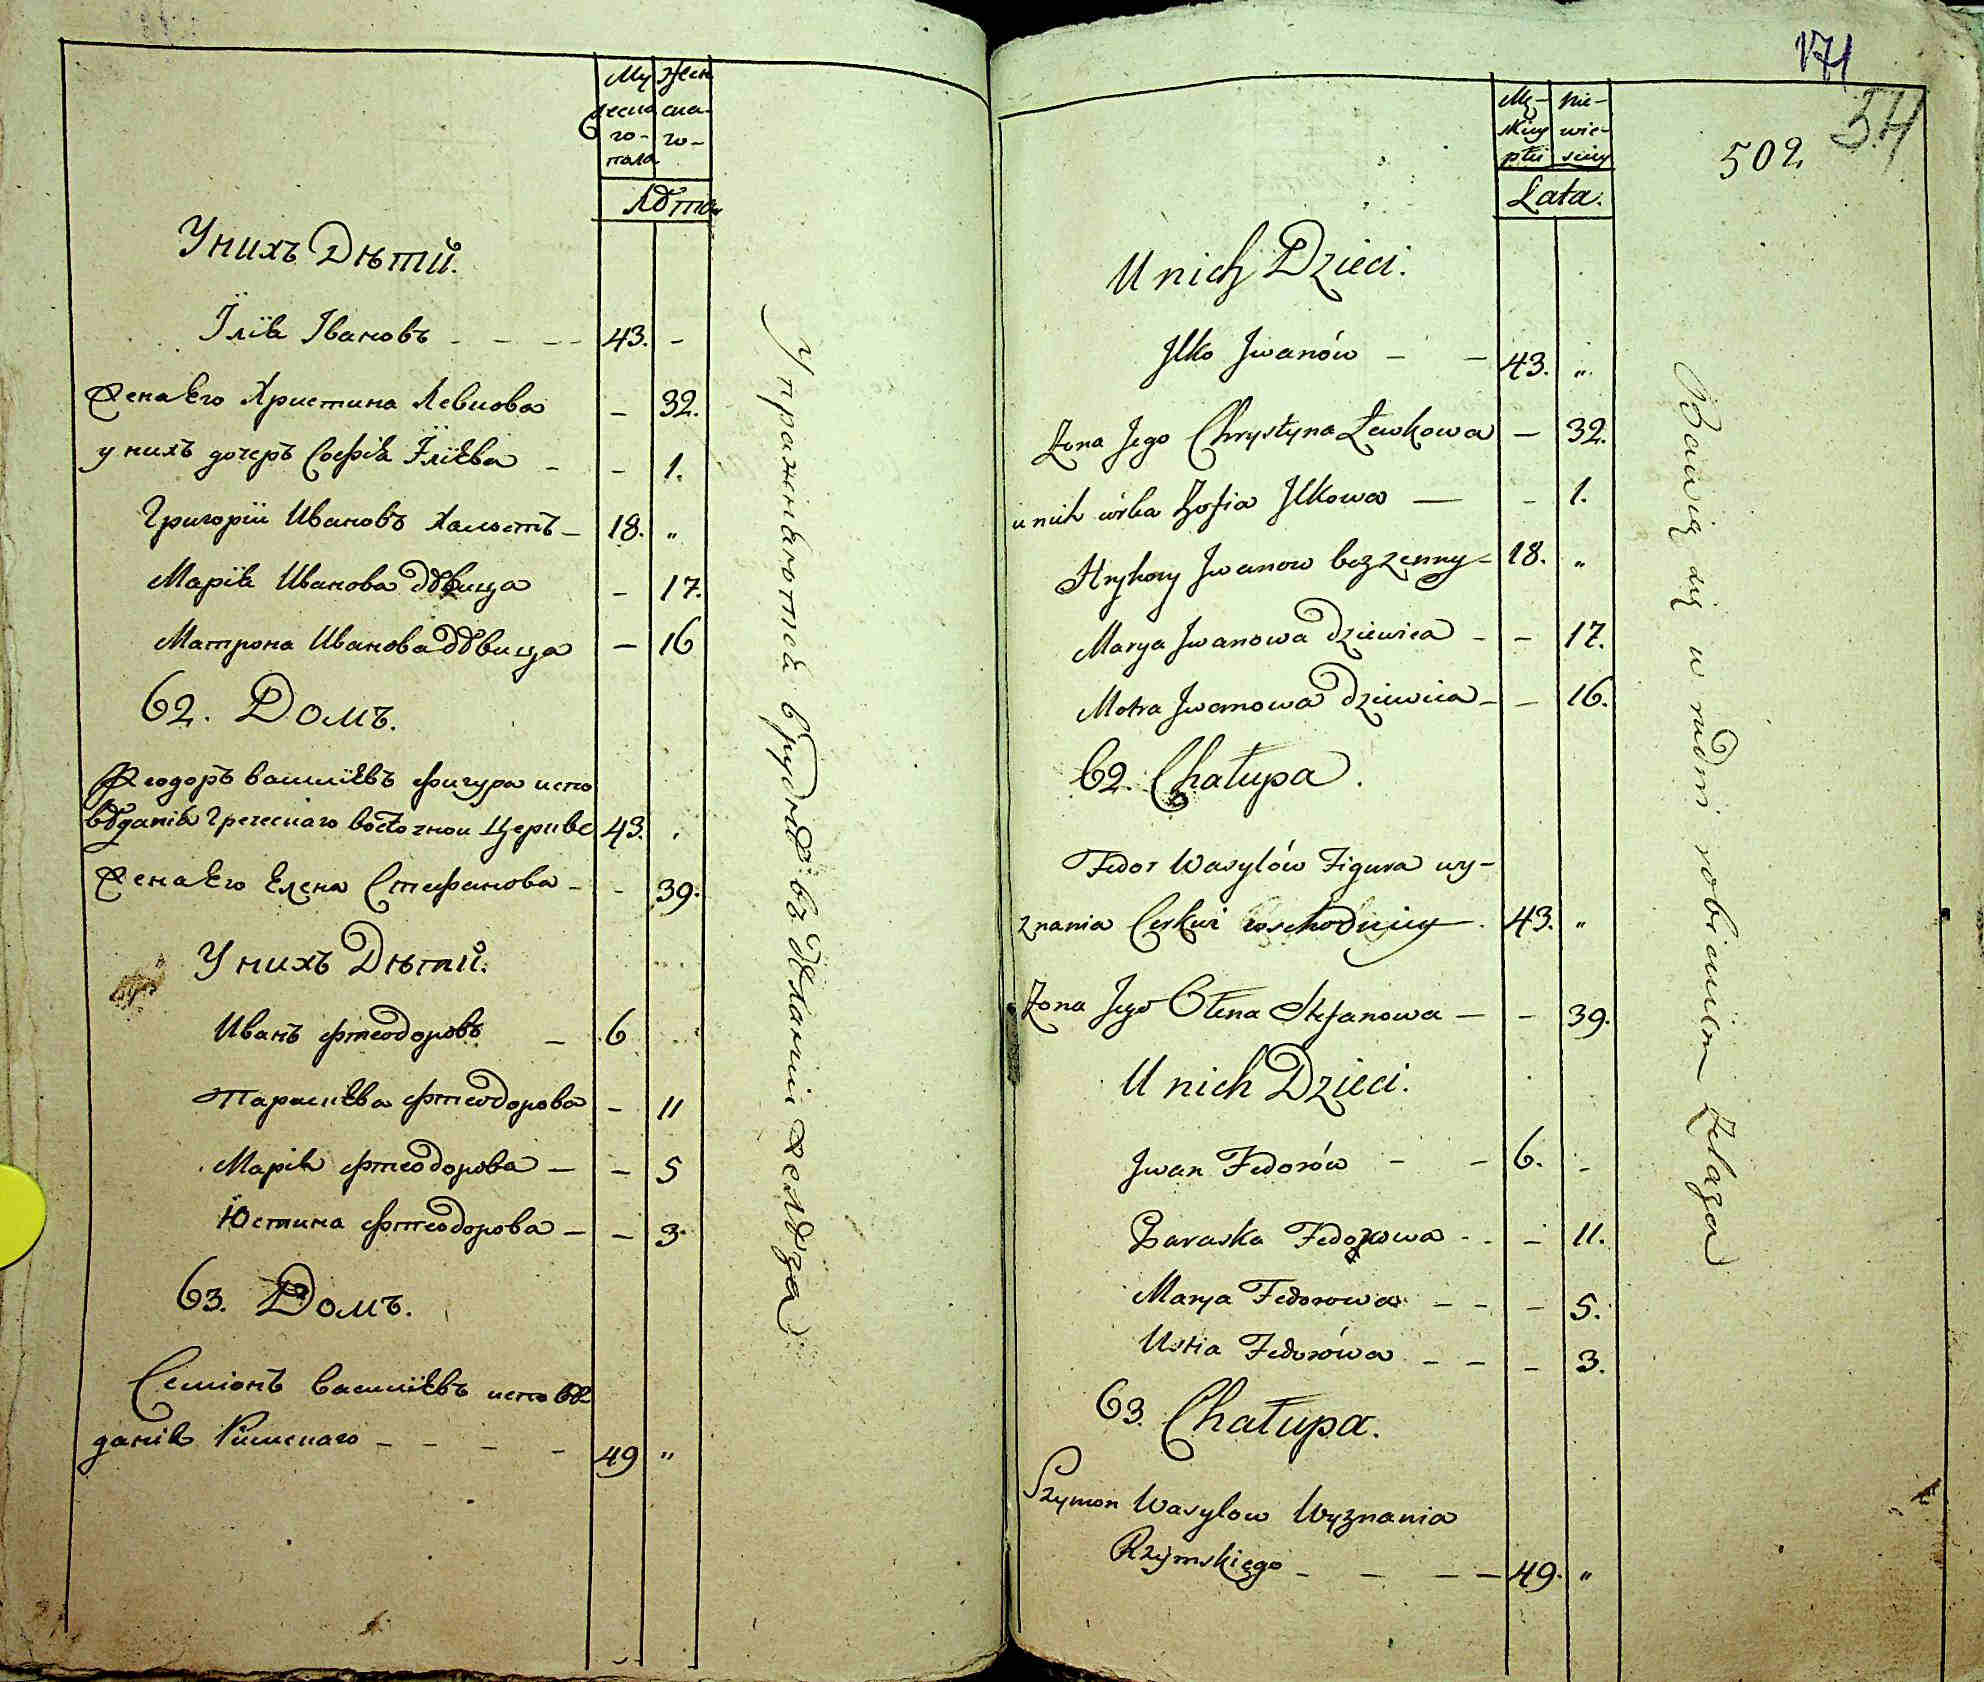 Му Жен
жеска ска-
го- го-
пола
Лѣта
Унихъ Дѣтй.
Їлїя Івановъ - - - - 43. -
Жена Его Христина Левкова - 32.
у нихъ дочеръ Софія Їлїева - - 1.
Григорїи Ивановъ Халостъ - 18. „
Марїя Иванова дѣвица - 17.
Матрона Иванова дѣвица - 16
62. Домъ.
Феодоръ василїевъ фигура испо
вѣданія Греческаго восточнои Церкве 43. „
Жена Его Елена Стефанова - - 39.
У нихъ Дѣтй.
Иванъ фтеодоровъ - 6
Параскева фтеодорова - 11
Марія фтеодорова - - 5
Юстина фтеодорова - - 3.
63. Домъ.
Семіонъ василїевъ исповѣ
данія Римскаго - - - - 49 „
Упражняются врудни въ дѣланіи желѣза
171
34
502
Mę- nie-
skiey wie-
płci sciey
Lata.
U nich Dzieci.
Jlko Jwanów - - 43. „
Żona Jego Chrystyna Lewkowa - 32.
u nich córka Zofia Jlkowa - - 1.
Hryhory Jwanow bezżenny - 18. „
Marya Jwanowa dziewica - - 17.
Motra Jwanowa dziewica - - 16.
62. Chałupa.
Fedor Wasylów Figura wy-
znania Cerkwi wschodniey - 43. „
Żona Jego Ołena Stefanowa - - 39.
U nich Dzieci.
Jwan Fedorów - - 6. -
Paraska Fedorowa - - - 11.
Marya Fedorowa - - - 5.
Ustia Fedorówa - - - 3.
63. Chałupa.
Szymon Wasylow Wyznania
Rzymskiego - - - - 49. „
Bawią się w rudni robieniem żelaza